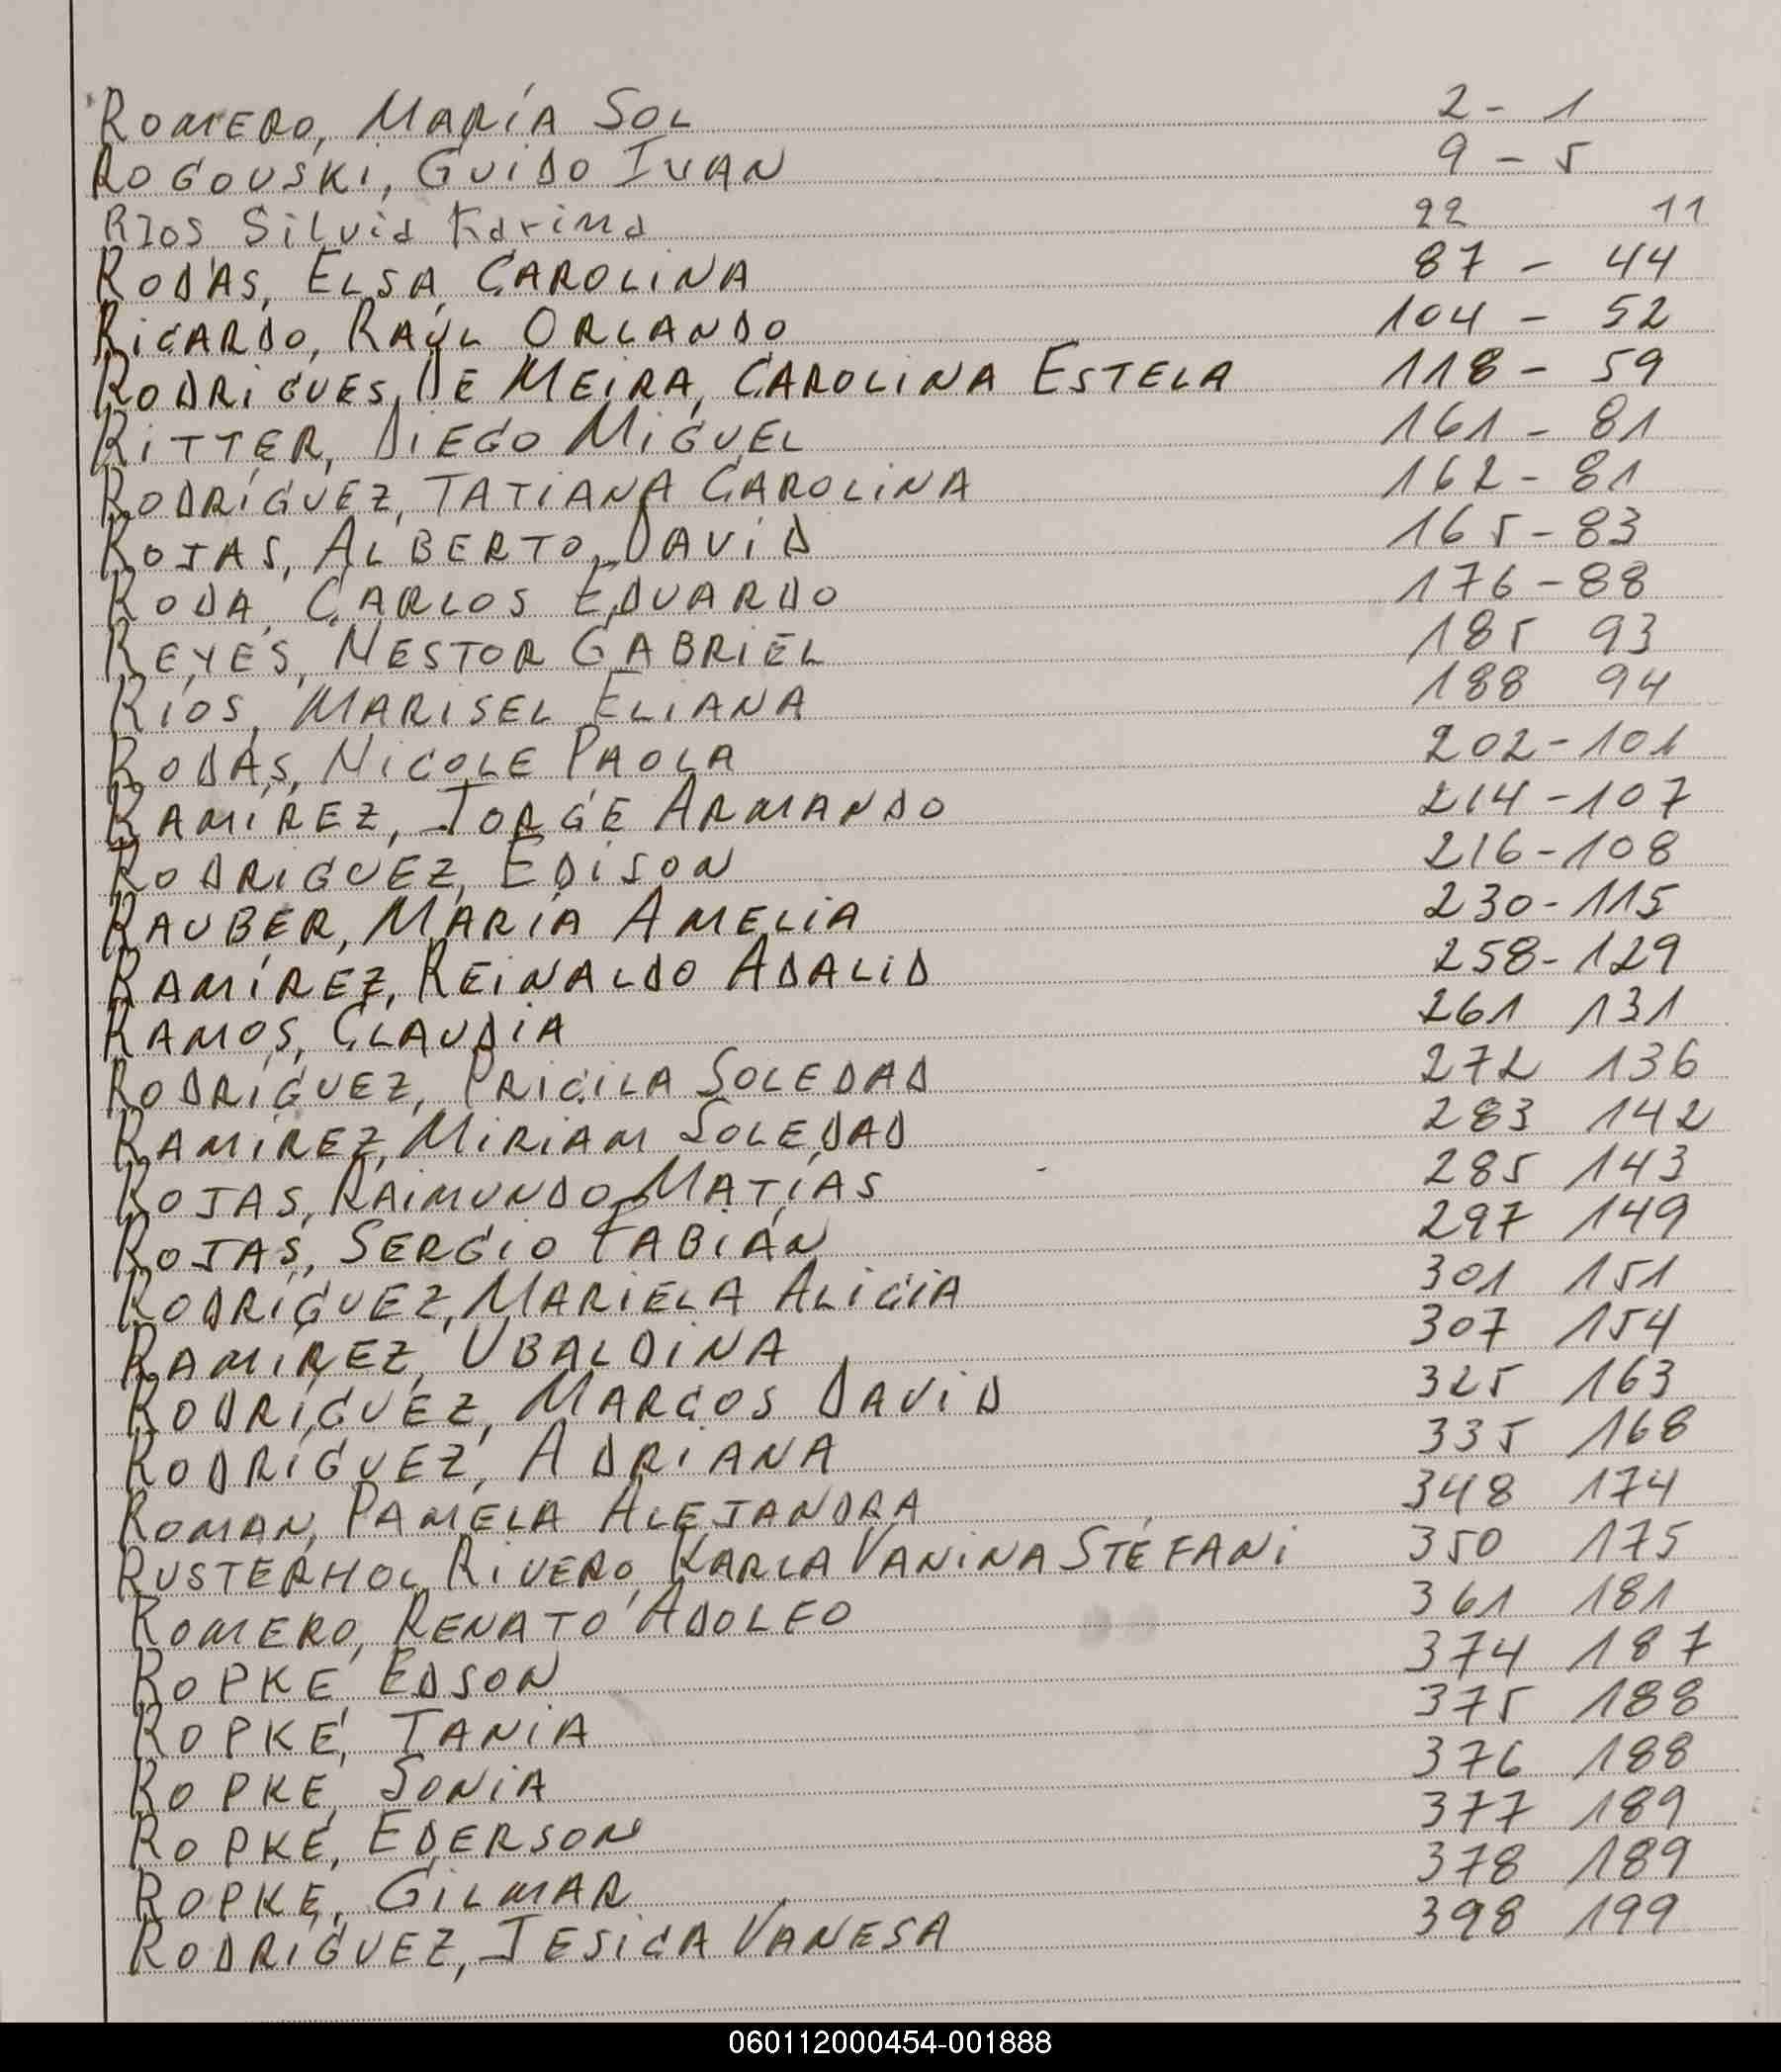 ROMERO, MARÍA SOL 2 - 1
ROGOVSKI, GUIDO IVAN 9 - 5
RIOS Silvia Karina 22 11
RODAS, ELSA CAROLINA 87 - 44
RICARDO, RAÚL ORLANDO 104 - 52
RODRIGUES DE MEIRA, CAROLINA ESTELA 118 - 59
RITTER, DIEGO MIGUEL 161 - 81
RODRÍGUEZ, TATIANA CAROLINA 162 - 81
ROJAS, ALBERTO DAVID 165 - 83
RODA, CARLOS EDUARDO 176 - 88
REYES, NESTOR GABRIEL 185 93
RÍOS, MARISEL ELIANA 188 94
RODAS, NICOLE PAOLA 202 - 101
RAMÍREZ, JORGE ARMANDO 214 - 107
RODRIGUEZ, EDISON 216 - 108
RAUBER, MARÍA AMELIA 230 - 115
RAMÍREZ, REINALDO ADALID 258 - 129
RAMOS, CLAUDIA 261 131
RODRÍGUEZ, PRICILA SOLEDAD 272 136
RAMÍREZ, MIRIAM SOLEDAD 283 142
ROJAS, RAIMUNDO MATÍAS 285 143
ROJAS, SERGIO FABIÁN 297 149
RODRÍGUEZ, MARIELA ALICIA 301 151
RAMÍREZ, UBALDINA 307 154
RODRÍGUEZ, MARCOS DAVID 325 163
RODRÍGUEZ, ADRIANA 335 168
ROMAN, PAMELA ALEJANDRA 348 174
RUSTERHOL RIVERO, KARLA VANINA STÉFANI 350 175
ROMERO, RENATO ADOLFO 361 181
ROPKE, EDSON 374 187
ROPKE, TANIA 375 188
ROPKE, SONIA 376 188
ROPKE, EDERSON 377 189
ROPKE, GILMAR 378 189
RODRÍGUEZ, JESICA VANESA 398 199
060112000454-001888